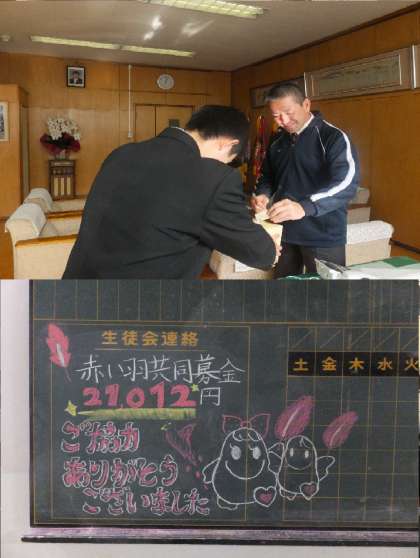 生徒会連絡
赤い羽共同募金
21,012円
ご協力
ありがとう
ございました
土 金 木 水 火